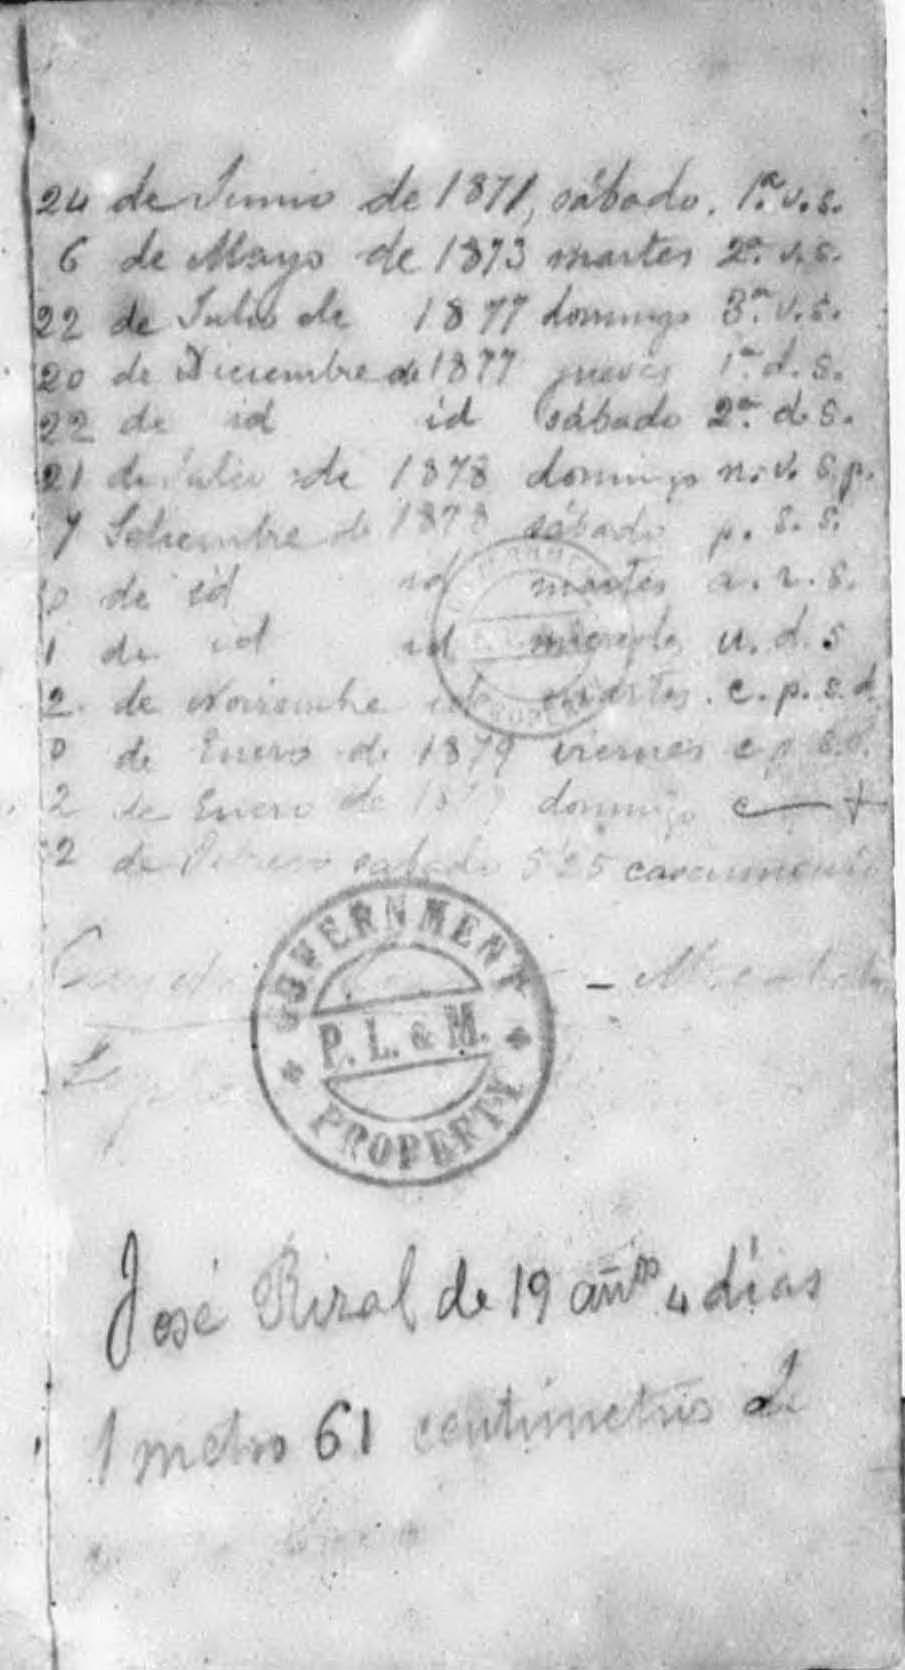 24 de Junio de 1871, sábado. 1.ª v.s.
6 de Mayo de 1873 martes 2ª. v.s.
22 de Julio de 1877 domingo 3.ª v.s.
20 de Diciembre de 1877 jueves 1ª. d. s.
22 de id id sábado 2ª. d s.
21 de Julio de 1878 domingo n. v. s. p.
7 Setiembre de 1878 sábado p. s. s.
de id id martes a. r. s.
1 de id id u. d. s
2. de Noviembre id martes. c. p. s. d.
de Enero de 1879 viernes c p s. d.
2 de Enero de 1879 domingo c — +
2 de sabado 5'25
GOVERNMENT
P. L. & M.
PROPERTY
José Rizal de 19 años 4 días
1 metro 61 centimetros